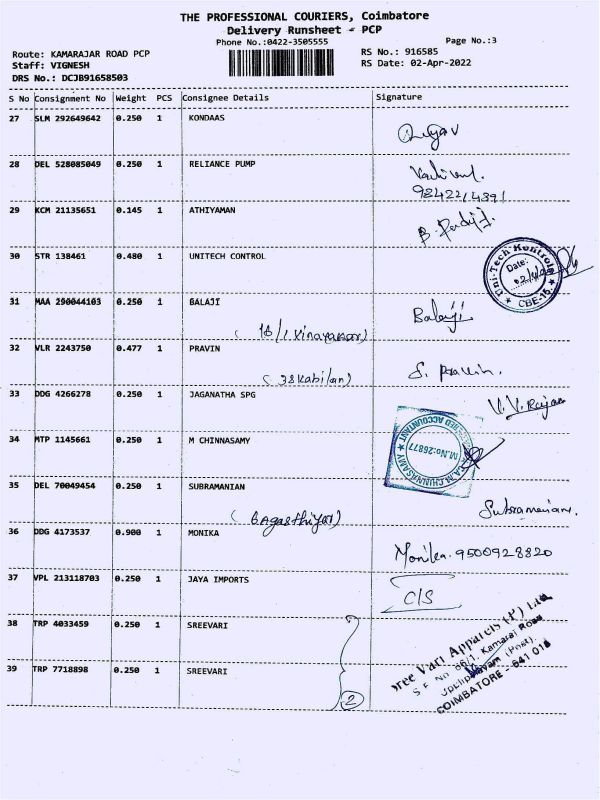 THE PROFESSIONAL COURIERS, Coimbatore
Delivery Runsheet - PCP
Phone No.:0422-3505555
Page No.:3
Route: KAMARAJAR ROAD PCP
RS No.: 916585
Staff: VIGNESH
RS Date: 02-Apr-2022
DRS No.: DCJB91658503
S No Consignment No Weight PCS Consignee Details Signature
27 SLM 292649642 0.250 1 KONDAAS
28 DEL 528085049 0.250 1 RELIANCE PUMP
29 KCM 21135651 0.145 1 ATHIYAMAN
30 STR 138461 0.480 1 UNITECH CONTROL
Uni-Tech Kontrols
Date:
CBE-15
31 MAA 290044103 0.250 1 BALAJI Balaji
(16/1 Vinayagar)
32 VLR 2243750 0.477 1 PRAVIN S. Pravin.
(38 Kabilan)
33 DDG 4266278 0.250 1 JAGANATHA SPG
34 MTP 1145661 0.250 1 M CHINNASAMY
M.CHINNASAMY
M.No:26877
ACCOUNTANT
35 DEL 70049454 0.250 1 SUBRAMANIAN Subramanian.
(6 Agasthiyar)
36 DDG 4173537 0.900 1 MONIKA Monika. 9500928820
37 VPL 213118703 0.250 1 JAYA IMPORTS C/S
38 TRP 4033459 0.250 1 SREEVARI
39 TRP 7718898 0.250 1 SREEVARI
2
Sree Vari Apparels (P) Ltd
S F No 66/1 Kamaraj Road
(Post).
COIMBATORE - 641 015